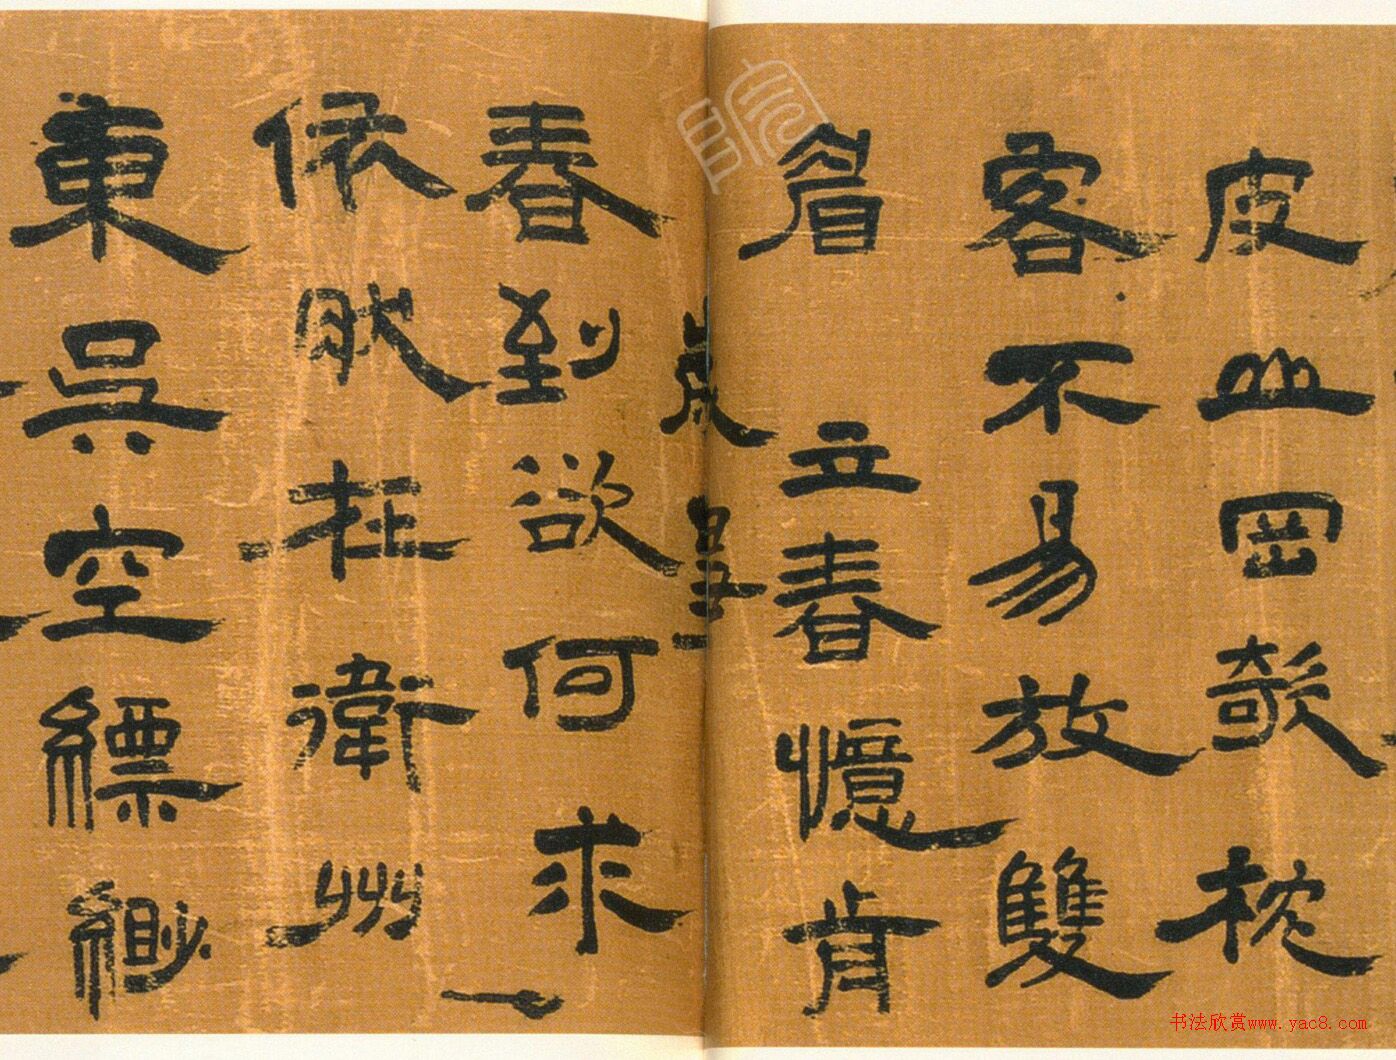 皮山岡欹枕
客不易放雙
眉 立春憶肯
春到欲何求
依肰在衛州
東吳空縹緲
书法欣赏www.yac8.com